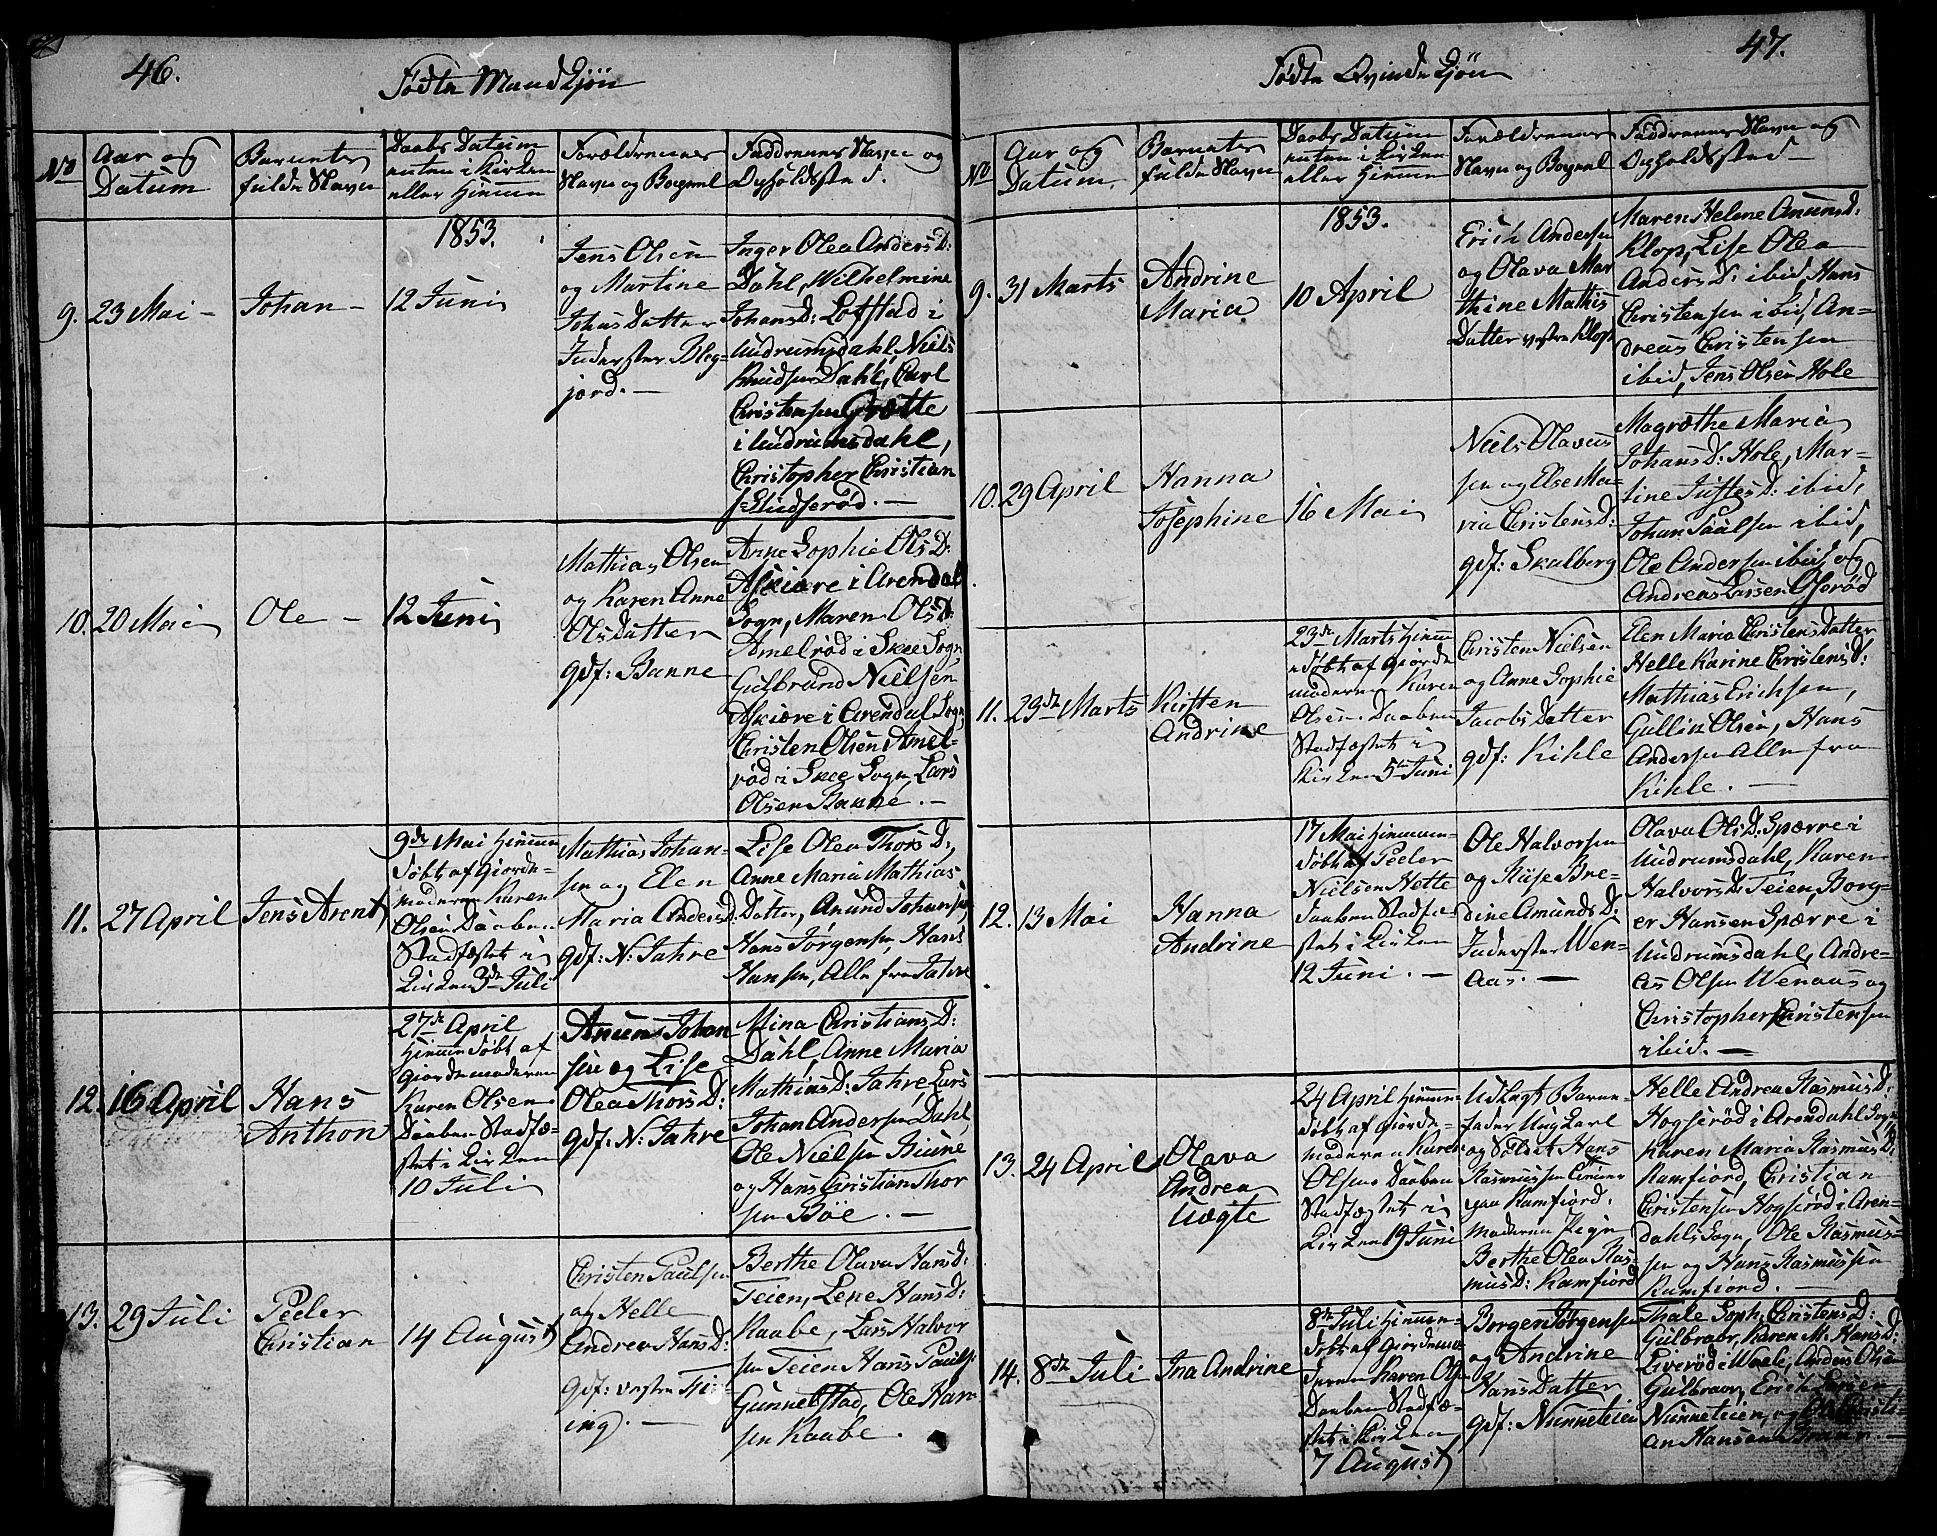 46.
Fødte Mandkjøn
No
Aar og
Datum
Barnets
fulde Navn
Daabs Datum
enten i Kirken
eller Hiemme
Forældrenes
Navn og Bopæl
Faddrenes Navne og
Opholdsted.
1853.
9.
23 Mai
Johan
12 Juni
Jens Olsen
og Martine
Johns Datter
Inderster Bleg-
jord.
Inger Olea Anders D:
Dahl, Wilhelmine
Johans D: Lofstad i
Undrumsdahl, Niels
Knudsen Dahl, Carl
Christensen Grætte
i Undrumsdahl,
Christopher Christian
sen
10.
20 Mai
Ole
12 Juni
Mathias Olsen
og Karen Anne
Ols Datter
gdf: Banne
Anne Sophie Ols D:
Askiære i Arendal
Sogn, Maren Ols D:
Amelrød i Skee Sogn,
Gulbrand Nielsen
Askiære i Arendal Sogn,
Christen Olsen Amel-
rød i Skee Sogn, Lars
Olsen Banne.
11.
27 April
Jens Arent
9de Mai hiemme
døbt af Giorde-
moderen Karen
Olsen Daaben
Stadfæstet i
Kirken 3de Juli
Mathias Johan-
sen og Elen
Maria Anders D.
gdf: N: Jahre
Lise Olea Thors D:,
Anne Maria Mathias
Datter, Anund Johansen,
Hans Jørgensen, Hans
Hansen, Alle fra Jahre
12.
16 April
Hans
Anthon
27de April
hiemme døbt af
Giordemoderen
Karen Olsen
Daaben Stadfæ-
stet i Kirken
10 Juli
Anuns Johan
sen og Lise
Olea Thors D:
gdf: N: Jahre
Mina Christians D:
Dahl, Anne Maria
Mathias D: Jahre, Lars
Johan Andersen Dahl,
Ole Nielsen Biune
og Hans Christian Thor
sen Bøe.
13.
29 Juli
Peder
Christian
14 August
Christen Paulsen
og Helle
Andrea Hans D:
gdf: vestre
ing.
Berthe Olava Hans D:
Teien, Lene Hans D:
Raabe, Lars Halvor
sen Teien, Hans Paulsen
Gunnestad, Ole Han
sen Raabe.
47.
Fødte Qvindekjøn
No
Aar og
Datum.
Barnets
fulde Navn
Daabs Datum
enten i Kirken
eller Hiemme
Forældrenes
Navn og Bopæl
Faddrenes Navn og
Opholdsted
1853.
9.
31 Marts
Andrine
Maria
10 April
Erich Andersen
og Olava Mar
thine Mathis
Datter vestre Klop
Maren Helene Anunds D:
Klop, Lise Olea
Anders D: ibid, Hans
Christensen ibid, An-
dreas Christensen
ibid, Jens Olsen Hole
10.
29 April
Hanna
Josephine
16 Mai
Niels Olavus
sen og Else Ma-
ria Christens D:
gdf: Skalberg
Magrethe Maria
Johans D: Hole, Mar-
tine Juftes D: ibid,
Johan Paalsen ibid,
Ole Andersen ibid og
Andreas Larsen Oserød
11.
23de Marts
Kirsten
Andrine
23de Marts hiemme
døbt af Giorde
moderen Karen
Olsen. Daaben
Stadfæstet i
Kirken 5te Juni
Christen Nielsen
og Anne Sophie
Jacobs Datter
gdf: Kihle
Elen Maria Christens Datter
Helle Karine Christens D:
Mathias Erichsen,
Gullik Olsen, Hans
Andersen Alle fra
Kihle.
12.
13 Mai
Hanna
Andrine
17 Mai hiemme
døbt af Peder
Nielsen Hette
Daaben Stadfæ
stet i Kirken
12 Juni.
Ole Halvorsen
og Riise Bre-
dine Amunds D:
Inderster Wen-
Aas.
Olava Ols D: Spærre i
Undrumsdahl, Karen
Halvors D: Teien, Borg-
er Hansen Spærre i
Undrumsdahl, Andre-
as Olsen Wenaas og
Christopher Christensen
ibid.
13.
24 April
Olava
Andrea
Uægte
24 April hiemme
døbt af Giorde-
moderen Karen
Olsen Daaben
Stadfæstet i
Kirken 19 Juni
Udlagt Barne
fader Ung Karl
og Soldat Hans
Rasmussen
paa Ramfiord.
Moderen Pigen
Berthe Olea Ras-
mus D: Ramfiord
Helle Andrea Rasmus D:
Hogserød i Arendahl Sogn
Karen Maria Rasmus D:
Ramfiord, Christian
Christensen Hogserød i Aren-
dahls Sogn, Ole Rasmus-
sen og Hans Rasmussen
Ramfiord.
14.
8de Juli
Ina Andrine
8de Juli hiemme
døbt af Giordemo
deren Karen Olsen
Daaben Stadfæ-
stet i Kirken
7 August
Borger Jørgensen
og Andrine
Hans Datter
gdf: Nunneteien
Thale Soph. Christens D:
Gulbraar, Karen M: Hans D:
Liverød i Waale, Anders Olsen
Gulbraar, Erich Larsen
Nunneteien, og Christi-
an Hansen